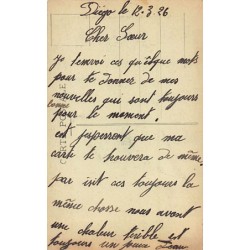 Diego le 12.3.26
Cher Sœur
je t'envoi ces quelque mots
pour te donner de mes
nouvelles qui sont toujours
bonne
pour le moment.
et jespereent que ma
carte te trouvera de même.
par isit ces toujours la
même chosse nous avont
une chaleur terible et
toujours un peux
CARTE POSTALE